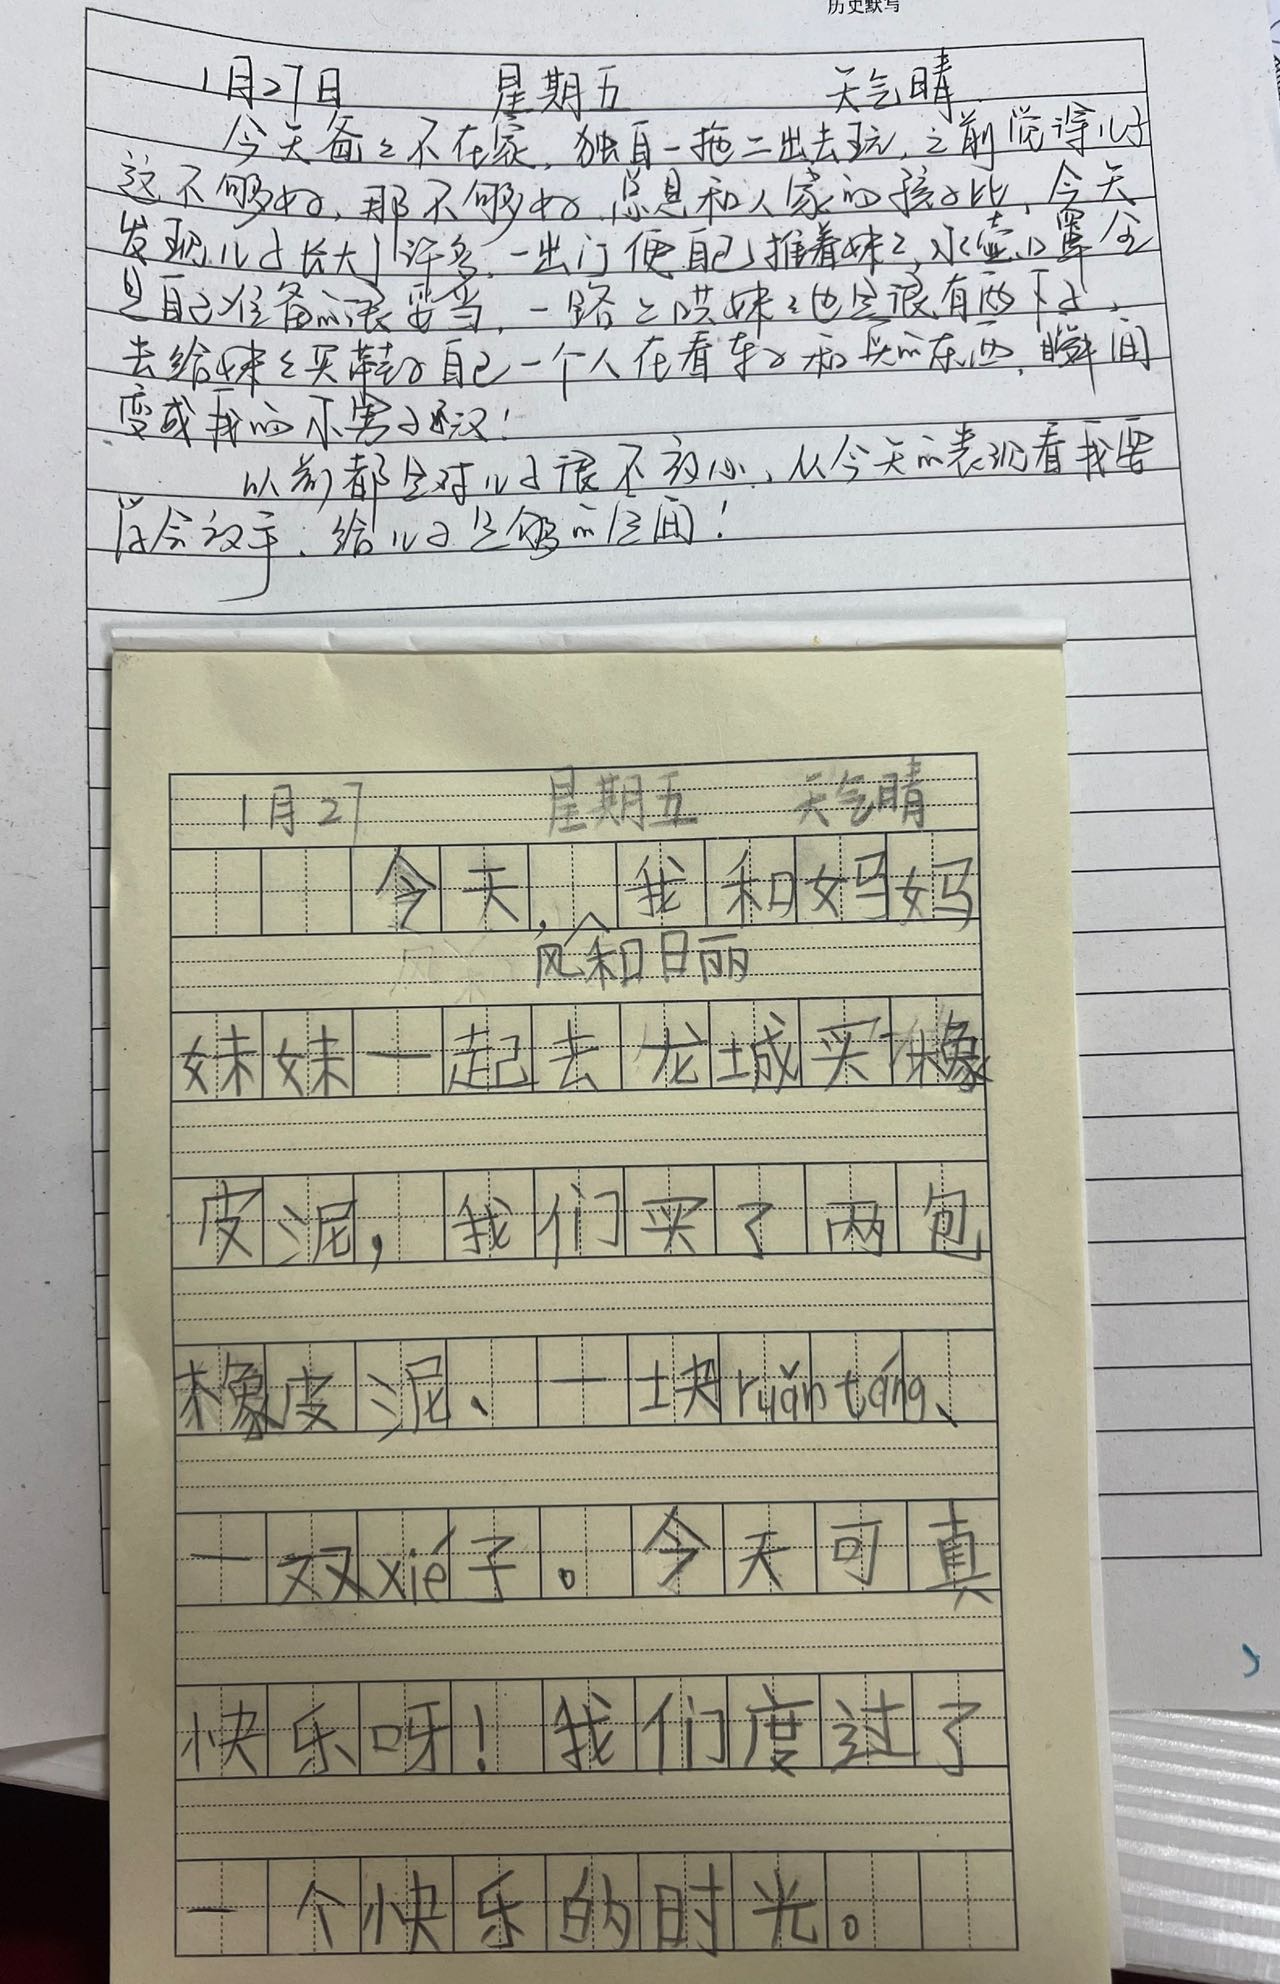 历史默写
1月27日 星期五 天气晴
今天爸爸不在家,独自一拖二出去玩,之前觉得儿子
这不够好,那不够好,总是和人家的孩子比,今天
发现儿子长大了许多,一出门便自己推着妹妹,水壶口罩全
是自己准备的很妥当,一路上哄妹妹也是很有两下子,
去给妹妹买鞋子自己一个人在看车子和买的东西,瞬间
变成我的小男子汉!
以前都是对儿子很不放心,从今天的表现看我要
学会放手,给儿子足够的空间!
1月27 星期五 天气晴
今天,我和妈妈
风和日丽
妹妹一起去龙城买橡
皮泥,我们买了两包
橡皮泥、一块ruǎn táng、
一双xié子。今天可真
快乐呀!我们度过了
一个快乐的时光。